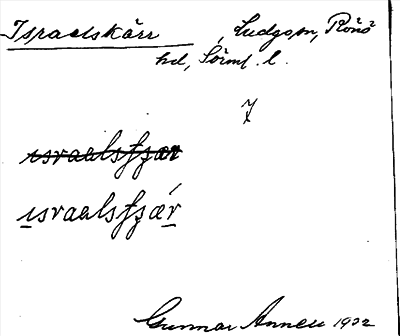 Israelskärr , Ludgo sn, Rönö
hd, Sörml. l.
ısraalsʃʒær
ısraalsʃʒǽr
Gunnar Annell 1932